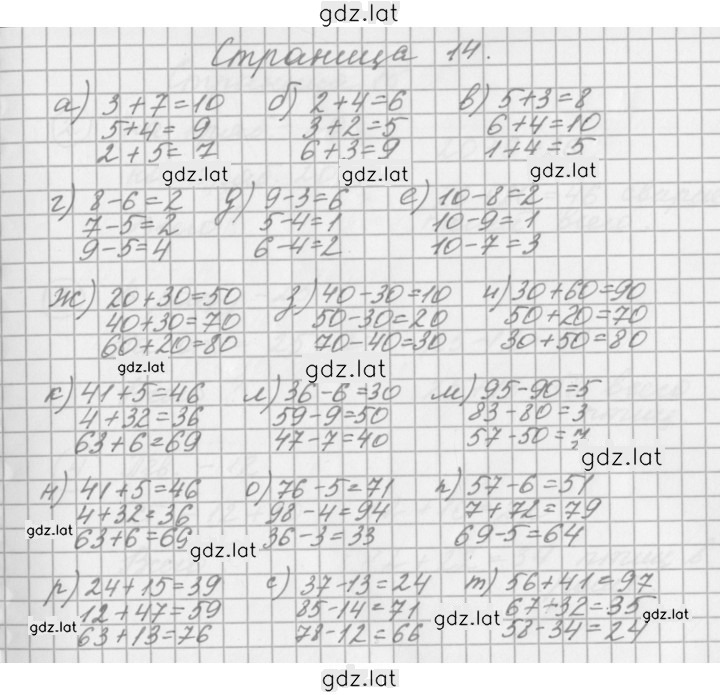 gdz.lat
Страница 14.
а) 3+7=10 б) 2+4=6 в) 5+3=8
5+4=9 3+2=5 6+4=10
2+5=7 6+3=9 1+4=5
gdz.lat gdz.lat gdz.lat
г) 8-6=2 д) 9-3=6 е) 10-8=2
7-5=2 5-4=1 10-9=1
9-5=4 6-4=2 10-7=3
ж) 20+30=50 з) 40-30=10 и) 30+60=90
40+30=70 50-30=20 50+20=70
60+20=80 70-40=30 30+50=80
gdz.lat gdz.lat
к) 41+5=46 л) 36-6=30 м) 95-90=5
4+32=36 59-9=50 83-80=3
63+6=69 47-7=40 57-50=7
gdz.lat
н) 41+5=46 о) 76-5=71 п) 57-6=51
4+32=36 98-4=94 7+72=79
63+6=69 36-3=33 69-5=64
gdz.lat gdz.lat
р) 24+15=39 с) 37-13=24 т) 56+41=97
12+47=59 85-14=71 67-32=35
63+13=76 78-12=66 58-34=24
gdz.lat gdz.lat gdz.lat
gdz.lat